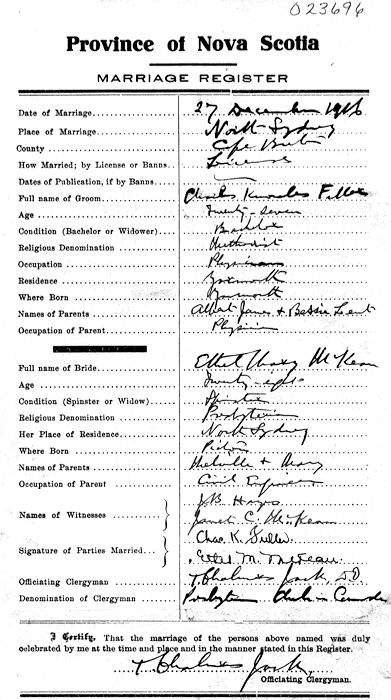 023696
Province of Nova Scotia
MARRIAGE REGISTER
Date of Marriage 27 December 1916
Place of Marriage North Sydney
County Cape Breton
How Married; by License or Banns License
Dates of Publication, if by Banns
Full name of Groom Charles Knowles Fuller
Age Twenty-seven
Condition (Bachelor or Widower) Bachelor
Religious Denomination Methodist
Occupation Physician
Residence Yarmouth
Where Born Yarmouth
Names of Parents Albert James & Bessie Lent
Occupation of Parent Physician
Full name of Bride Ethel Mary McKean
Age Twenty-eight
Condition (Spinster or Widow) Spinster
Religious Denomination Presbyterian
Her Place of Residence North Sydney
Where Born Pictou
Names of Parents Melville & Mary
Occupation of Parent Civil Engineer
Names of Witnesses J.B. Hayes
Janet C. McKean
Signature of Parties Married Chas. K. Fuller
Ethel M. McKean
Officiating Clergyman T. Chalmers Jack, D.D.
Denomination of Clergyman Presbyterian Church in Canada
I Certify, That the marriage of the persons above named was duly
celebrated by me at the time and place and in the manner stated in this Register.
T. Chalmers Jack
Officiating Clergyman.